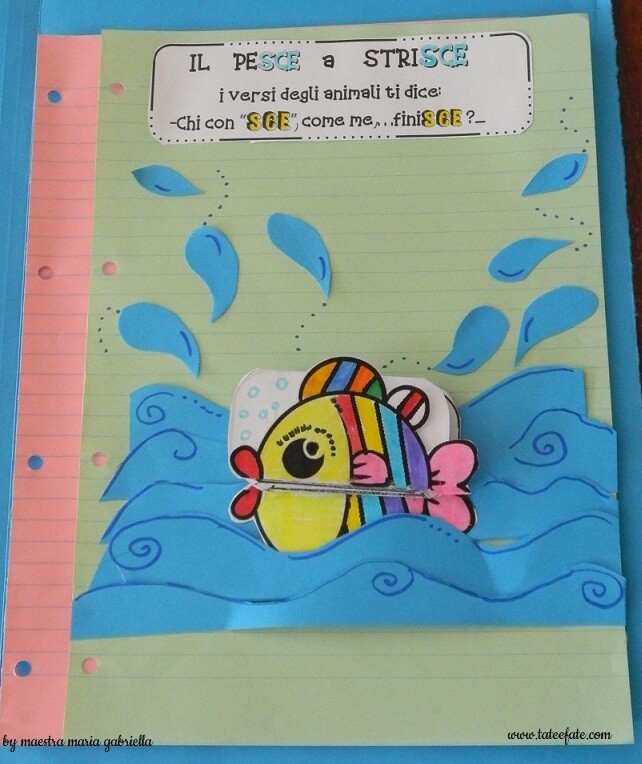 IL PESCE a STRISCE
i versi degli animali ti dice:
-Chi con "SCE", come me,...finiSCE ?_
by maestra maria gabriella
www.tateefate.com